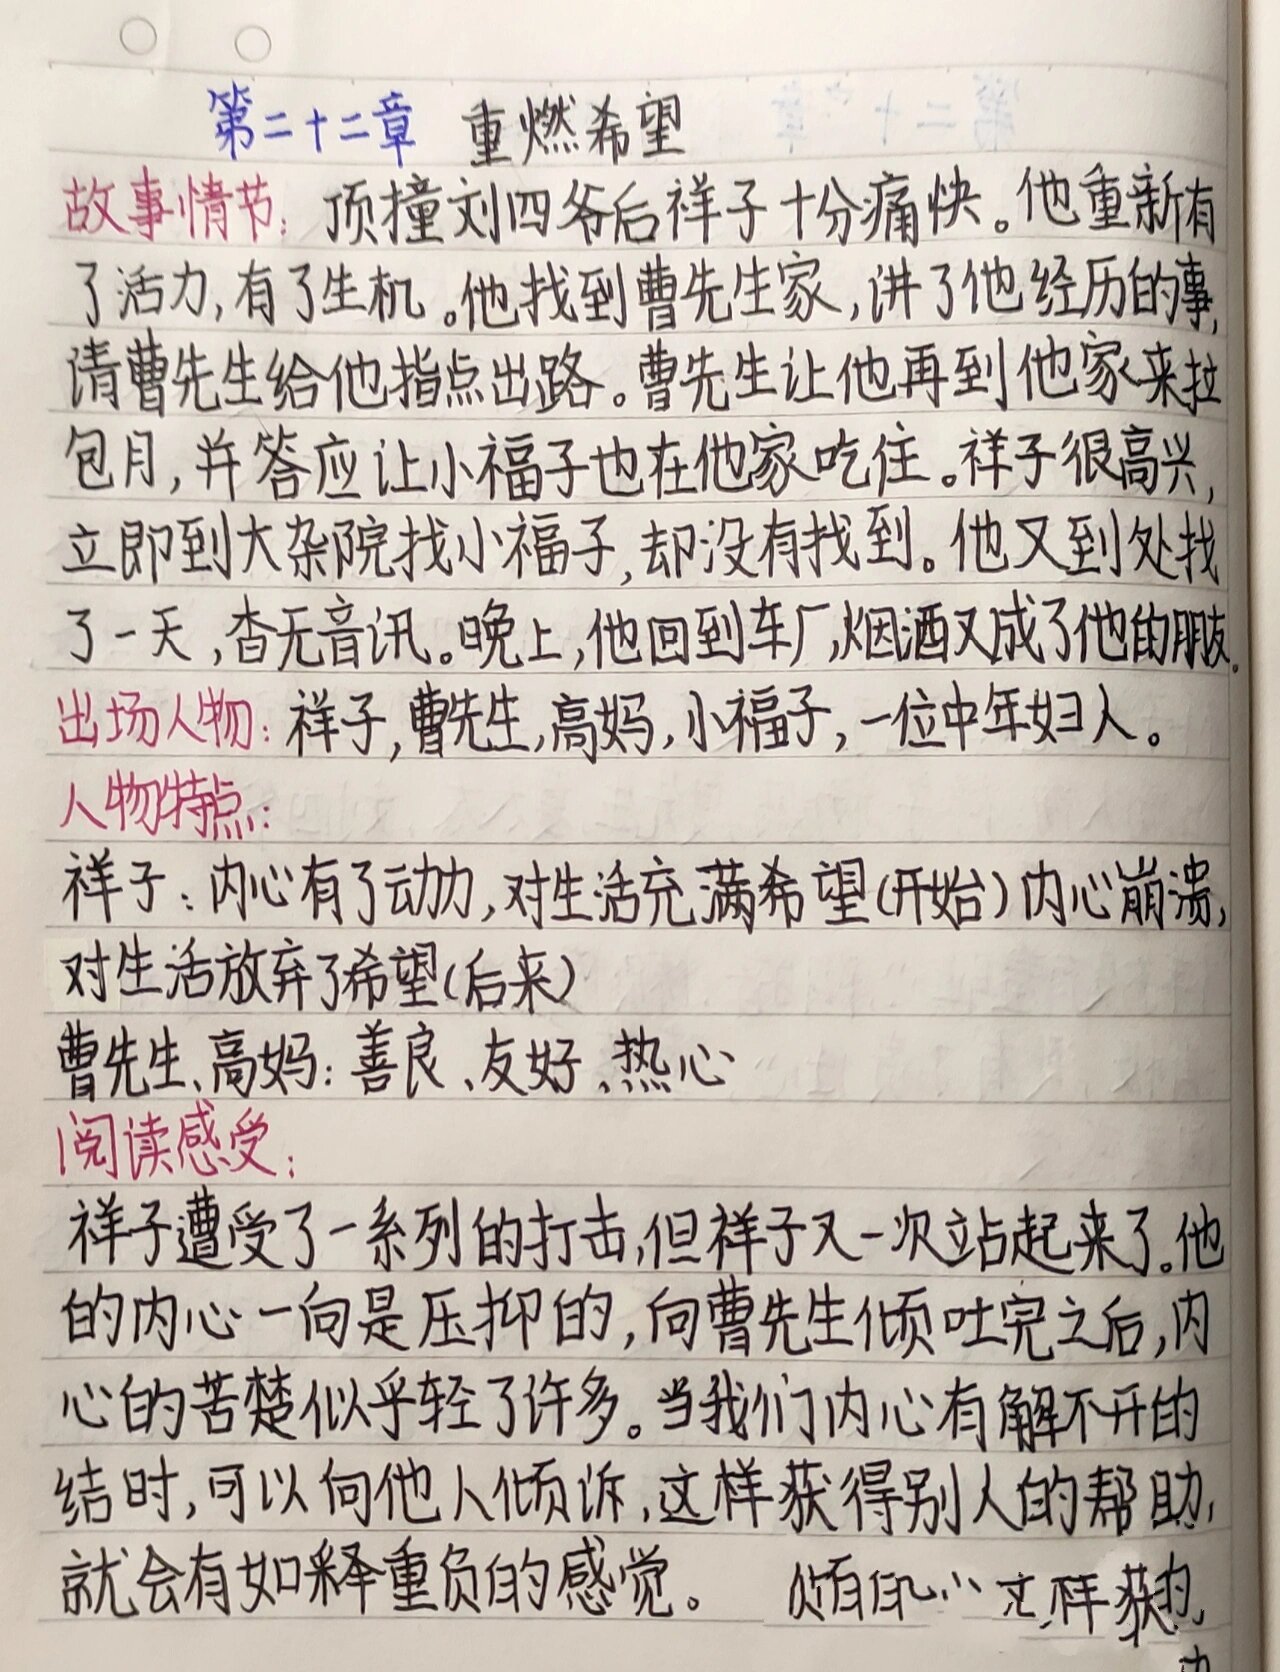 第二十二章 重燃希望
故事情节: 顶撞刘四爷后祥子十分痛快。他重新有
了活力,有了生机。他找到曹先生家,讲了他经历的事,
请曹先生给他指点出路。曹先生让他再到他家来拉
包月,并答应让小福子也在他家吃住。祥子很高兴,
立即到大杂院找小福子,却没有找到。他又到处找
了一天,杳无音讯。晚上,他回到车厂,烟酒又成了他的朋友。
出场人物: 祥子,曹先生,高妈,小福子,一位中年妇人。
人物特点:
祥子:内心有了动力,对生活充满希望(开始)内心崩溃,
对生活放弃了希望(后来)
曹先生、高妈:善良、友好、热心
阅读感受:
祥子遭受了一系列的打击,但祥子又一次站起来了。他
的内心一向是压抑的,向曹先生倾吐完之后,内
心的苦楚似乎轻了许多。当我们内心有解不开的
结时,可以向他人倾诉,这样获得别人的帮助,
就会有如释重负的感觉。